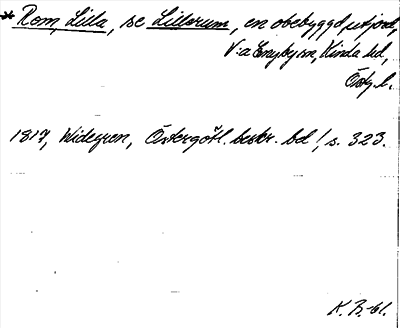 * Rom, Lilla, se Lillerum, en obebyggd utjord,
V:a Eneby sn, Kinda hd,
Östg. l.
1817, Widegren, Östergötl. beskr. bd 1, s. 323.
K. B. -61.